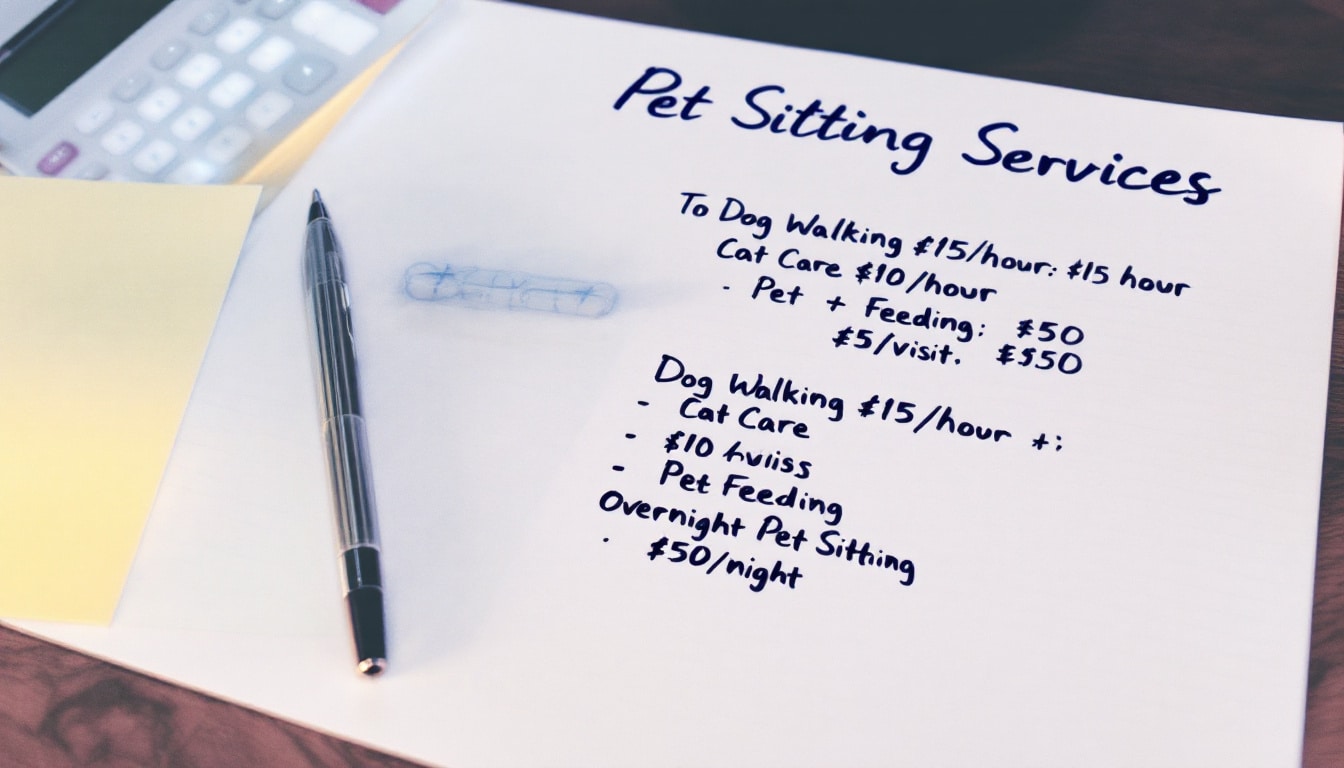 Pet Sitting Services
To Dog Walking $15/hour: $15 hour
Cat Care $10/hour
- Pet + Feeding: $50
$5/visit. $$50
Dog Walking $15/hour +:
- Cat Care
- $10
- Pet Feeding
Overnight Pet Sitthing
· $50/night